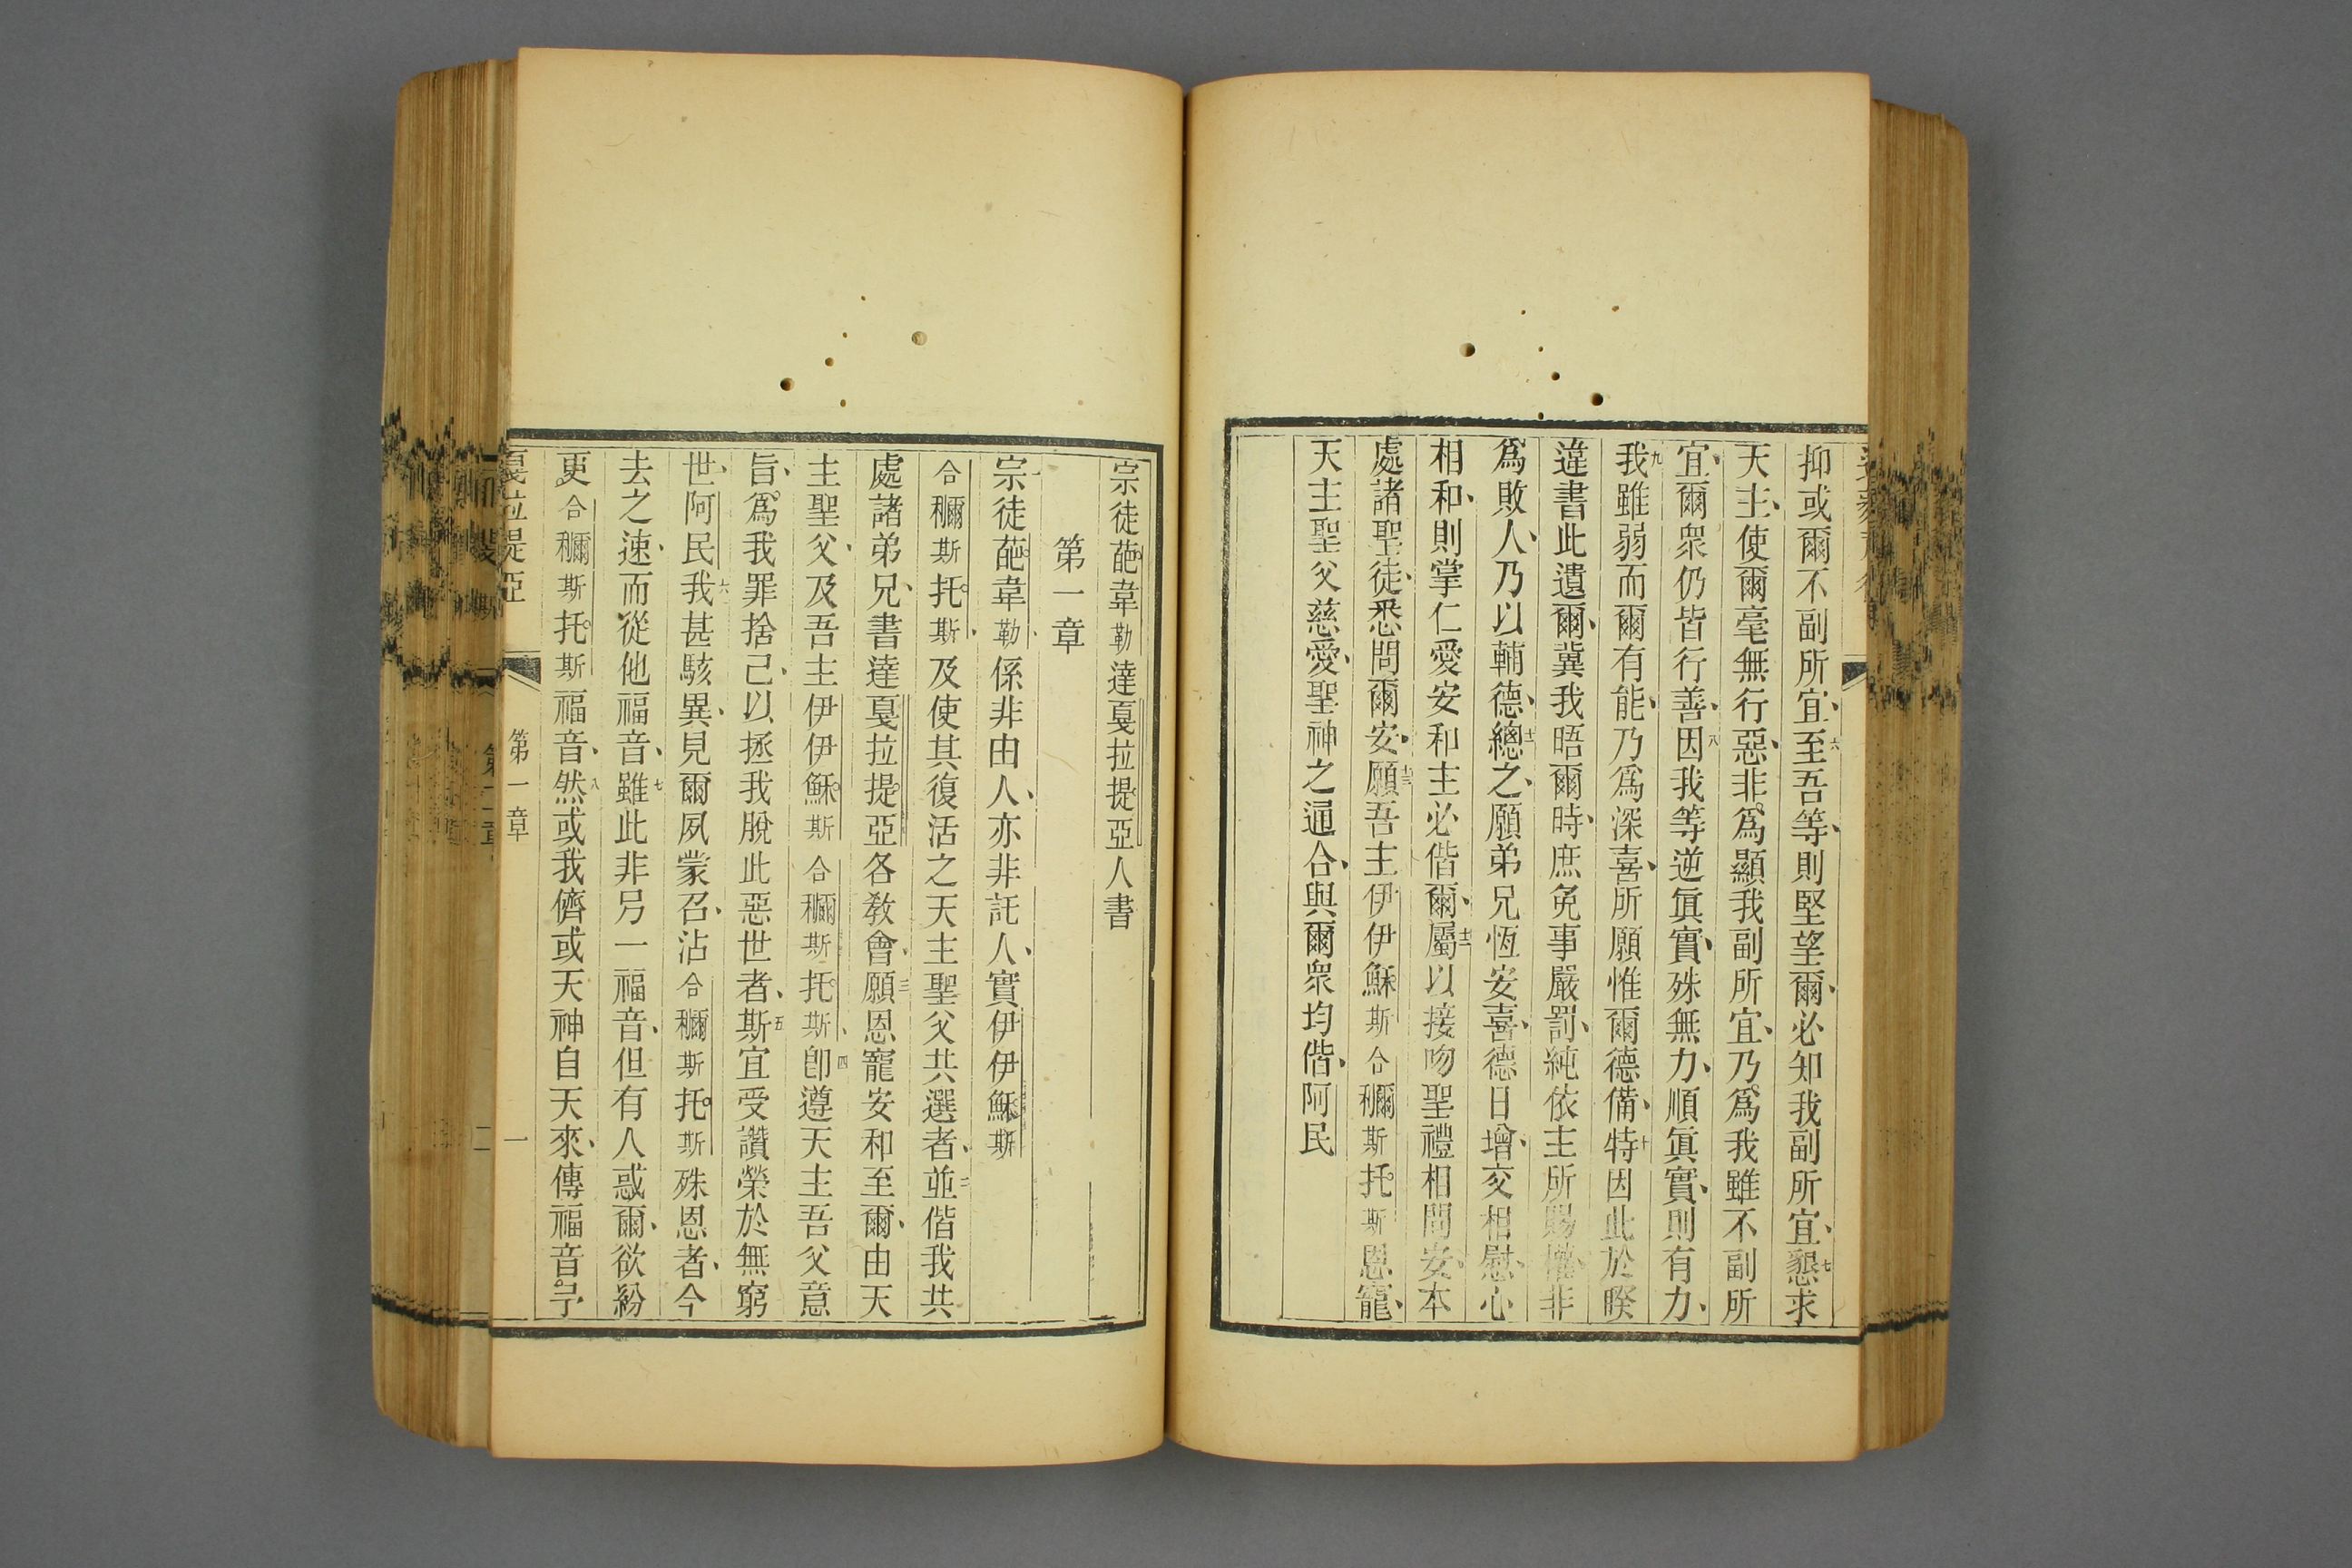 抑或爾不副所宜、六至吾等、則堅望爾、必知我副所宜、七懇求
天主、使爾毫無行惡、非爲顯我副所宜、乃爲我雖不副所
宜、爾衆仍皆行善、八因我等逆眞實、殊無力、順眞實、則有力、
九我雖弱而爾有能、乃爲深喜、所願惟爾德備、十特因此於睽
違書此遺爾、冀我晤爾時、庶免事嚴罰、純依主所賜權、非
爲敗人、乃以輔德、十一總之、願弟兄恆安喜、德日增、交相慰、心
相和、則掌仁愛安和主必偕爾、十二屬以接吻聖禮相問安、本
處諸聖徒、悉問爾安、十三願吾主伊伊穌斯合穪斯托斯恩寵、
天主聖父慈愛、聖神之通合、與爾衆均偕、阿民
宗徒葩韋勒達戛拉提亞人書
第一章
一宗徒葩韋勒、係非由人、亦非託人、實伊伊穌斯
合穪斯托斯、及使其復活之天主聖父共選者、二並偕我共
處諸弟兄、書達戛拉提亞各敎會、三願恩寵安和至爾、由天
主聖父、及吾主伊伊穌斯合穪斯托斯、四卽遵天主吾父意
旨、爲我罪捨己、以拯我脫此惡世者、五斯宜受讚榮於無窮
世、阿民六我甚駭異、見爾夙蒙召、沾合穪斯托斯殊恩者、今
去之速、而從他福音、七雖此非另一福音、但有人惑爾、欲紛
更合穪斯托斯福音、八然或我儕或天神自天來、傳福音、异
戛拉提亞 第一章 一